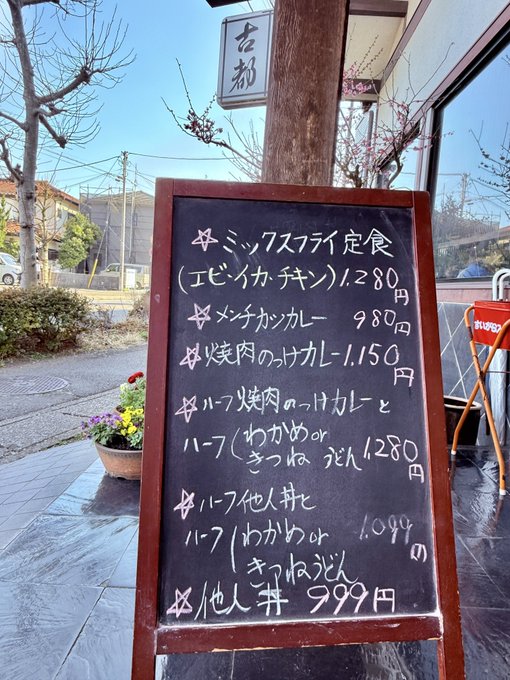 古都
☆ミックスフライ定食
(エビ・イカ・チキン) 1,280円
☆メンチカツカレー 980円
☆焼肉のっけカレー 1,150円
☆ハーフ焼肉のっけカレーと
ハーフ(わかめor
きつねうどん 1,280円
☆ハーフ他人丼と
ハーフ(わかめor 1,099円
きつねうどん
☆他人丼 999円